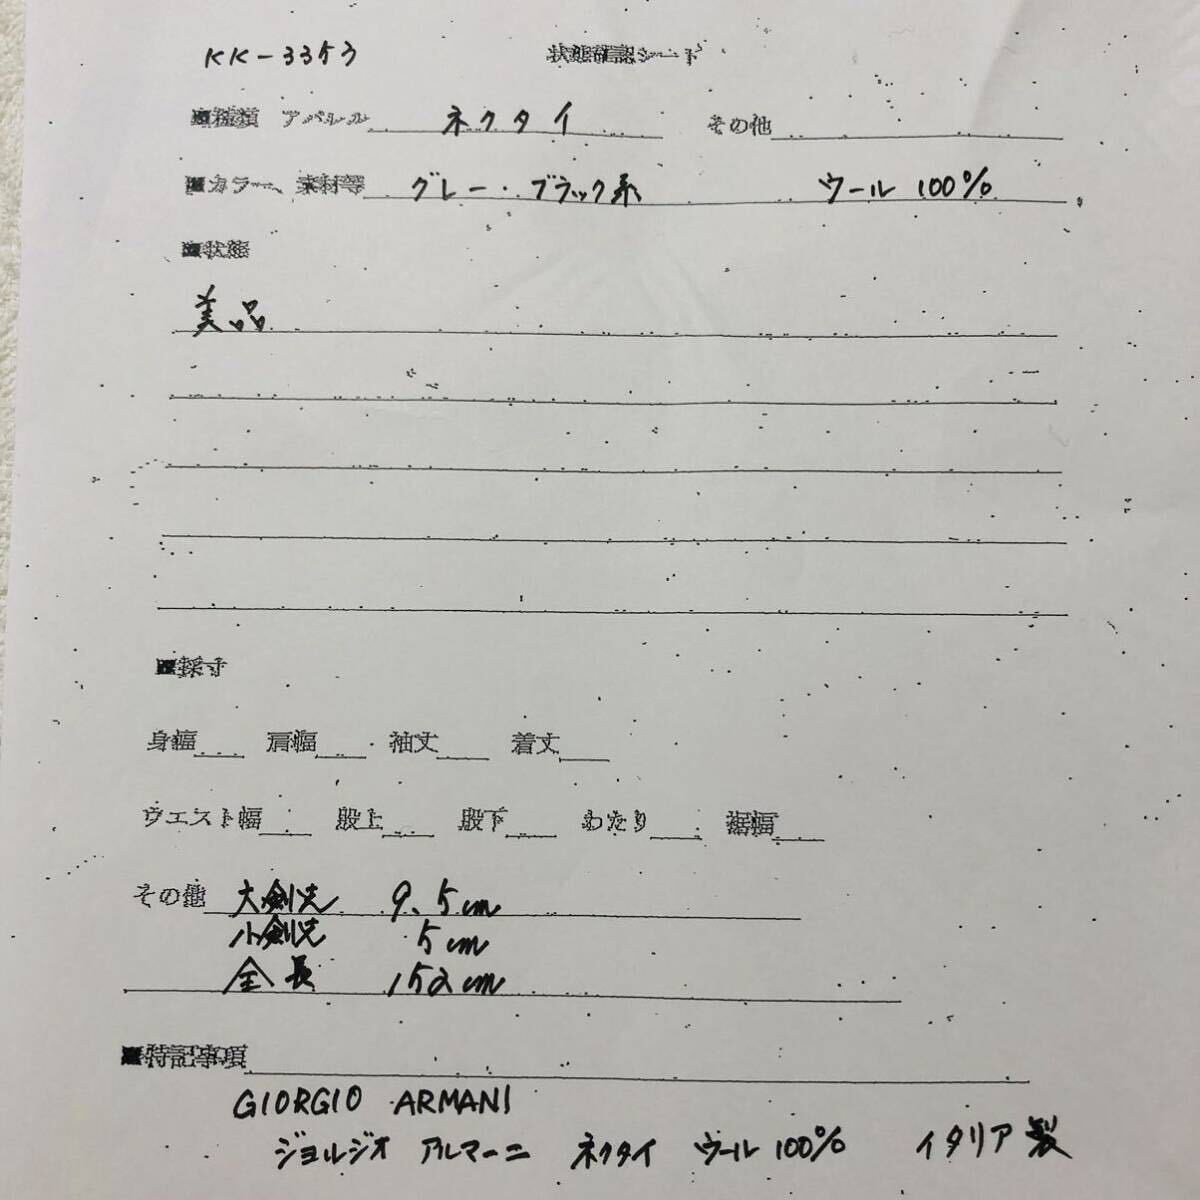 KK-3353 状態確認シート
■種類 アパレル ネクタイ その他
■カラー、素材等 グレー・ブラック系 ウール 100%
■状態
美品
■採寸
身幅 肩幅 袖丈 着丈
ウエスト幅 股上 股下 わたり 裾幅
その他 大剣先 9.5cm
小剣先 5cm
全長 152cm
■特記事項
GIORGIO ARMANI
ジョルジオ アルマーニ ネクタイ ウール 100% イタリア製